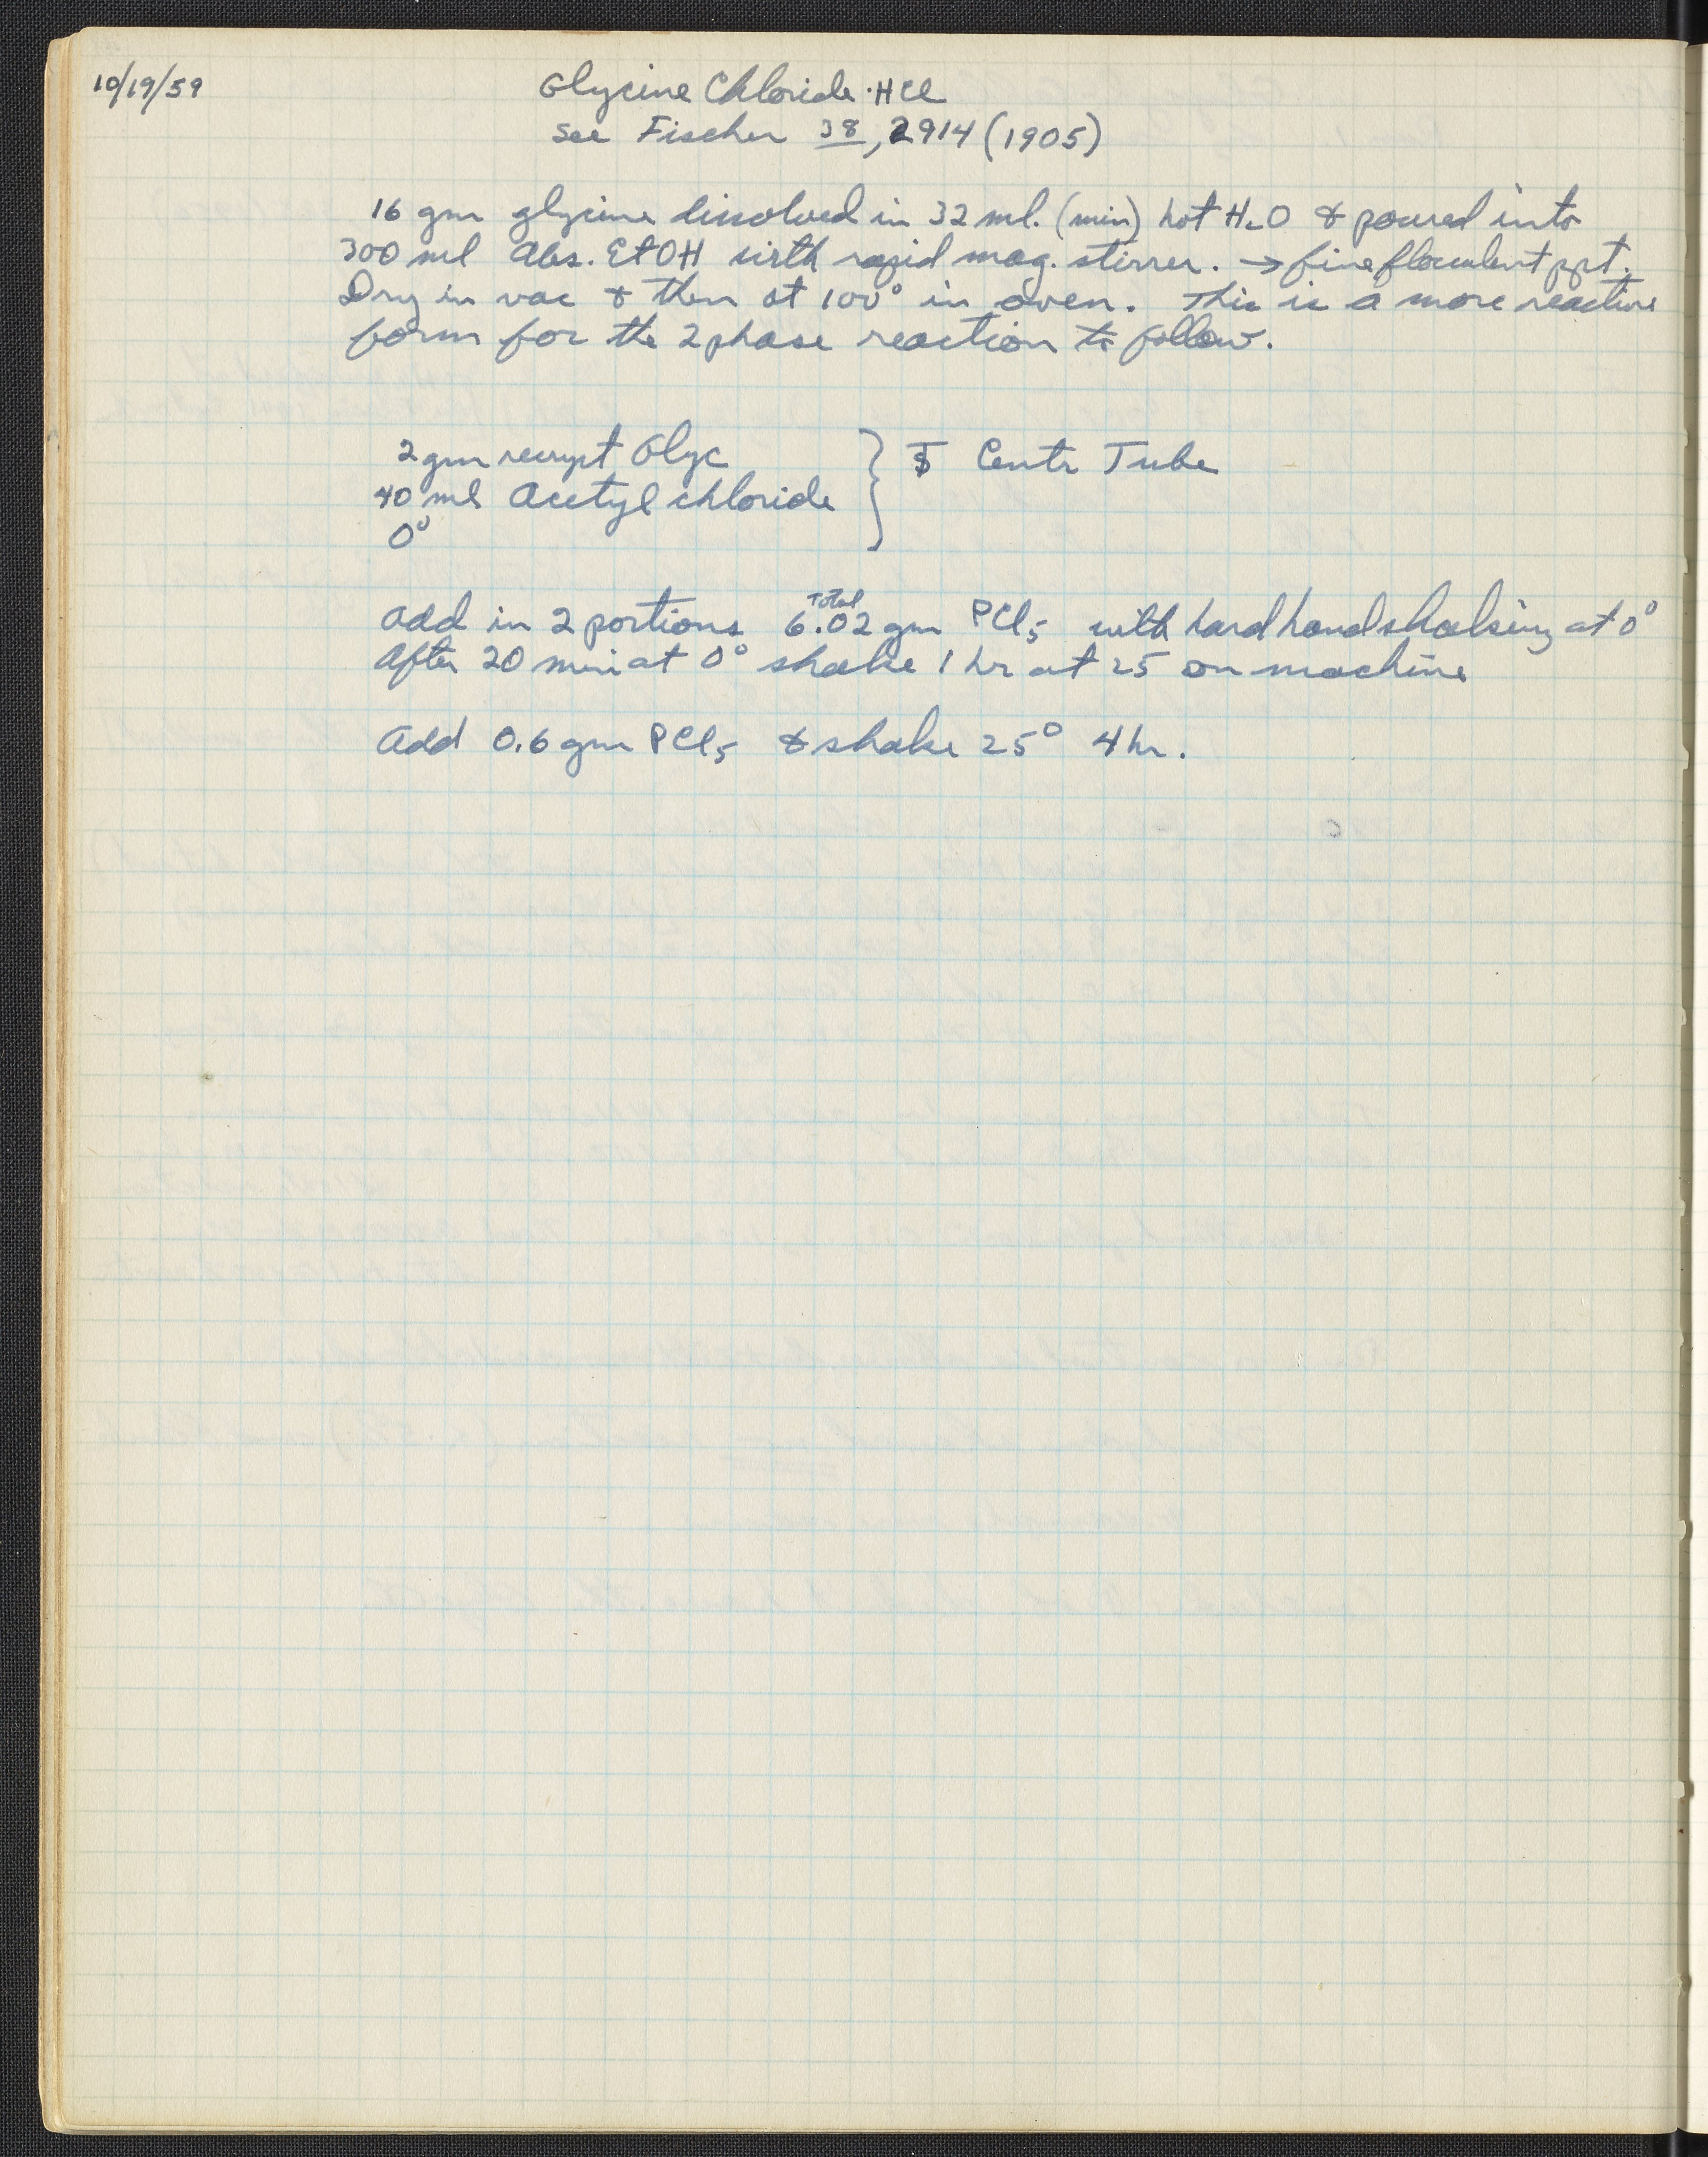 10/19/59
Glycine Chloride·HCl
See Fischer 38, 2914 (1905)
16 gm glycine dissolved in 32 ml. (min) hot H2O & poured into
300 ml Abs. EtOH with rapid mag. stirrer. → fine flocculent ppt.
Dry in vac & then at 100° in oven. This is a more reactive
form for the 2 phase reaction to follow.
2 gm recryst Glyc
40 ml Acetyl chloride
0°
Centr Tube
Add in 2 portions Total 6.02 gm PCl5 with hard handshaking at 0°
After 20 min at 0° shake 1 hr at 25 on machine
Add 0.6 gm PCl5 & shake 25° 4 hr.